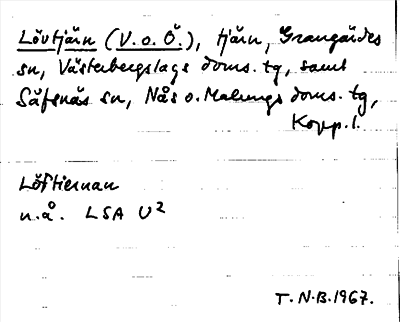 Lövtjärn (V. o. Ö.), tjärn, Grangärdes
sn, Västerbergslags doms. tg, samt
Säfsnäs sn, Nås o. Malungs doms. tg,
Kopp. l.
Löftiernan
n.å. LSA U²
T.N.B. 1967.